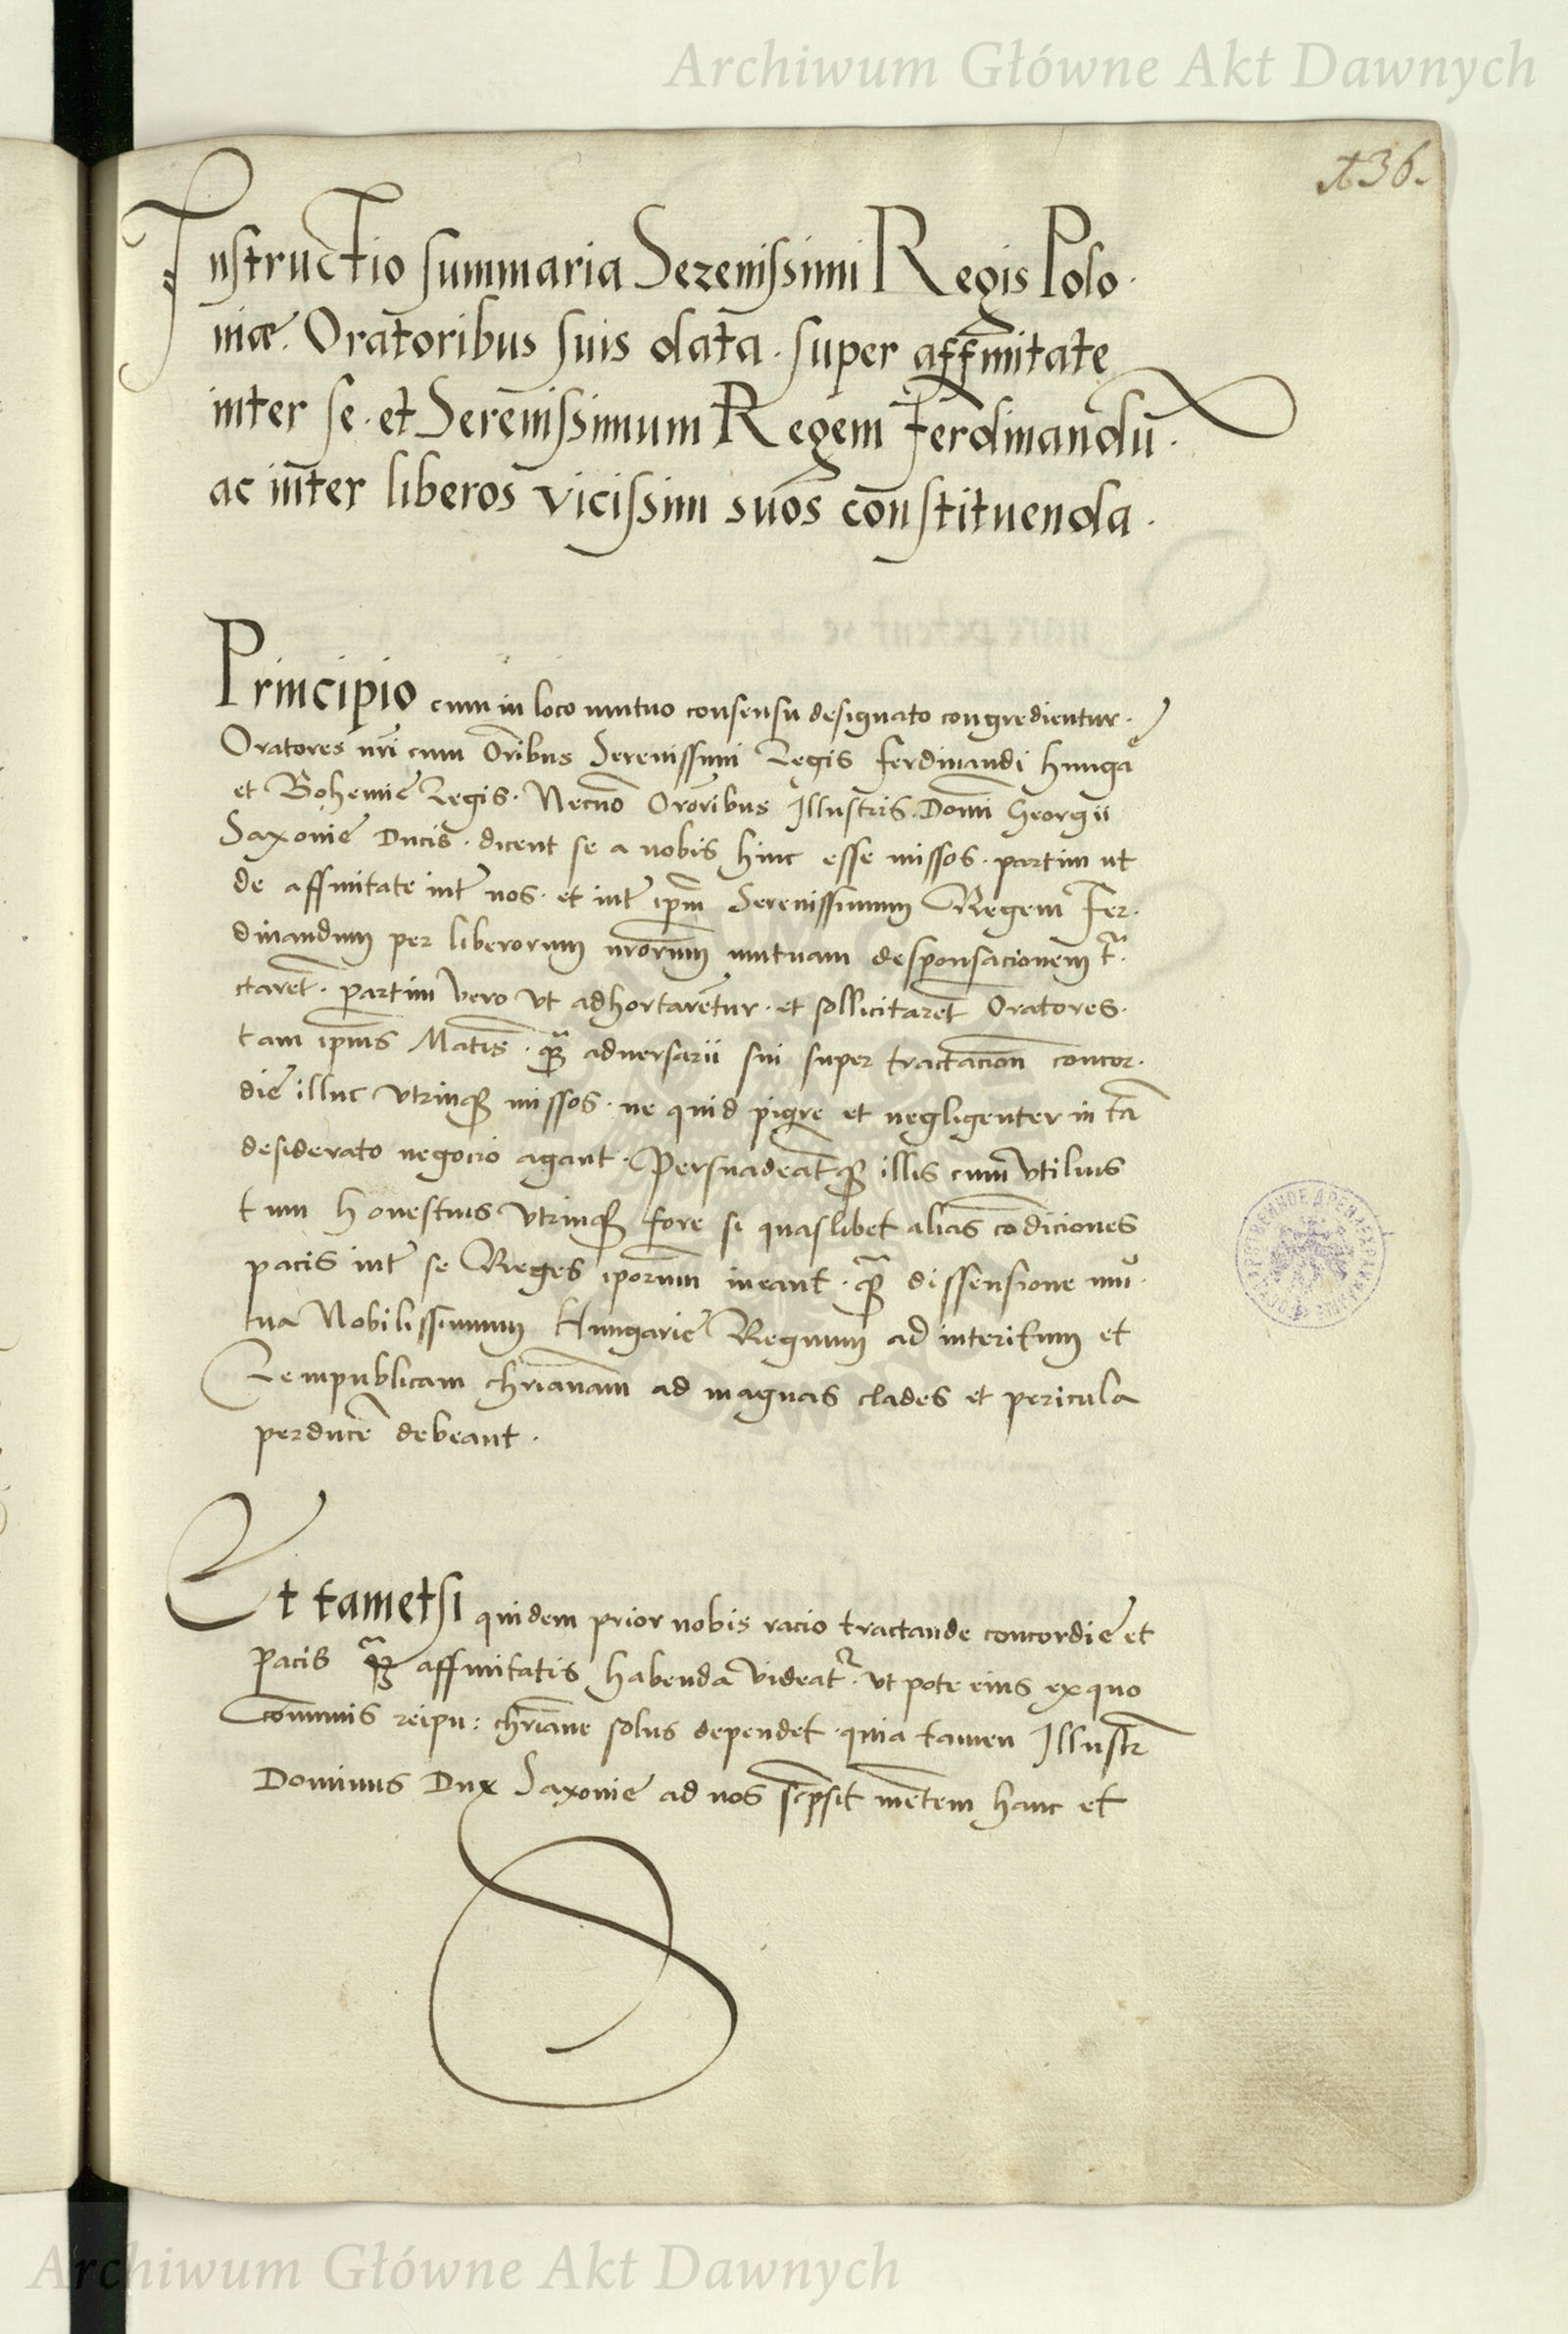 Archiwum Główne Akt Dawnych
136.
Instructio summaria Serenissimi Regis Polo·
niæ. Oratoribus suis data· super affinitate
inter se· et Serenissimum Regem Ferdinandū·
ac inter liberos vicissim suos constituenda·
Principio cum in loco mutuo consensu designato congredientur·
Oratores nr̄i cum Or̄ibus Serenissimi Regis Ferdinandi Hungaę
et Bohemię Regis· Necnō Orōribus Illustris· Domī Georgii
Saxonię Ducis· dicent se a nobis hinc esse missos· partim ut
de affinitate int̄ nos· et int̄ ip̄m Serenissimum Regem Fer·
dinandum per liberorum nr̄orum mutuam desponsacionem t̄ra·
ctarēt· partim vero ut adhortarētur· et sollicitarēt Oratores·
tam ip̄ius Mātis· q̄ȝ adversarii sui super tractacioñ concor·
dię illuc utrinqȝ missos· ne quid pigre et negligenter in tā
desiderato negocio agant· Persuadeantqȝ illis cum utilius
tum honestius utrinqȝ fore si quaslibet alias cōdiciones
pacis int̄ se Reges ip̄orum ineant· q̄ȝ dissensione mu·
tua Nobilissimum Hungarię Regnum ad interitum et
Rempublicam chr̄ianam ad magnas clades et pericula
perducē debeant·
Et tametsi quidem prior nobis racio tractande concordię et
pacis q̄ȝ affinitatis habenda videat̄· ut pote eius ex quo
Cōmunis reipu: chr̄iane solus dependet· quia tamen Illustr̄
Dominus Dux Saxonię ad nos sc̄psit mētem hanc et
Archiwum Główne Akt Dawnych